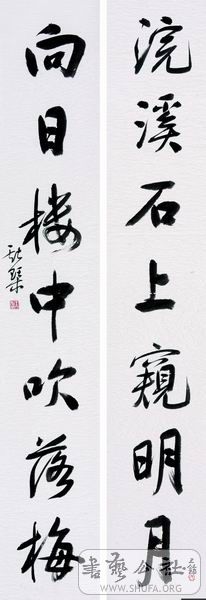 浣溪石上窺明月
向日楼中吹落梅
書藝公社
WWW.SHUFA.ORG